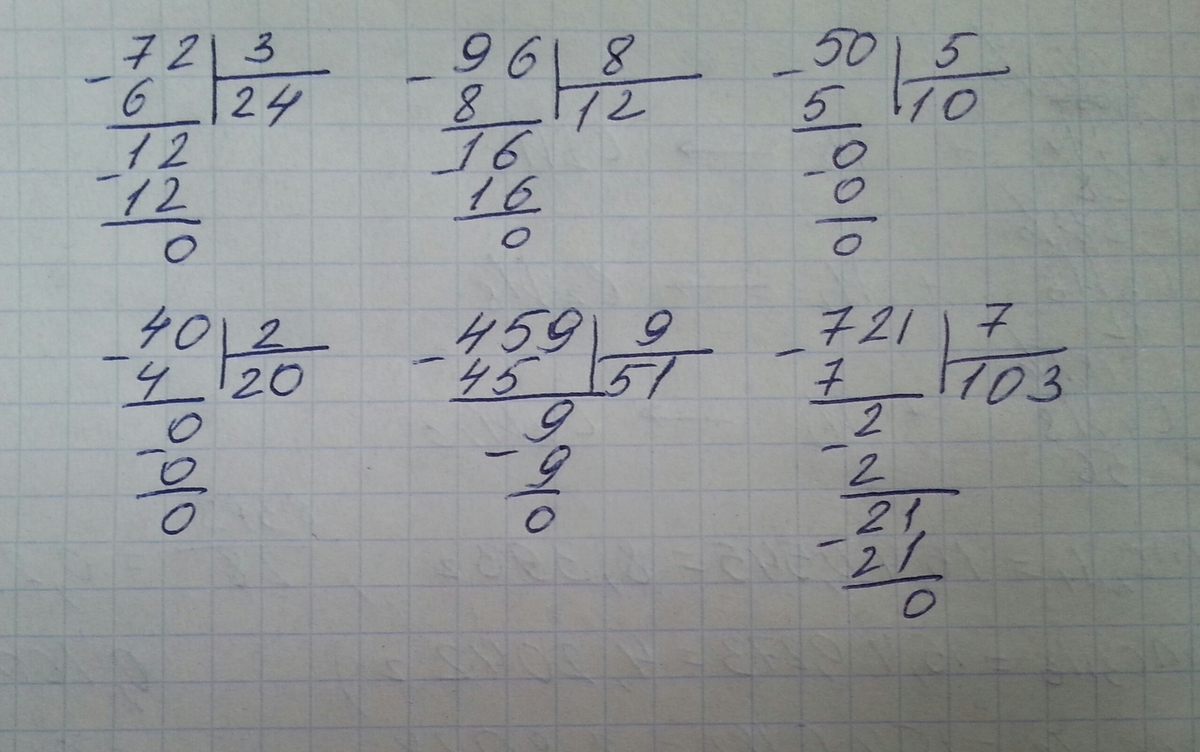 72 3
- 6 24
12
- 12
0
96 8
- 8 12
16
- 16
0
50 5
- 5 10
0
- 0
0
40 2
- 4 20
0
- 0
0
459 9
- 45 51
9
- 9
0
721 7
- 7 103
2
- 2
21
- 21
0